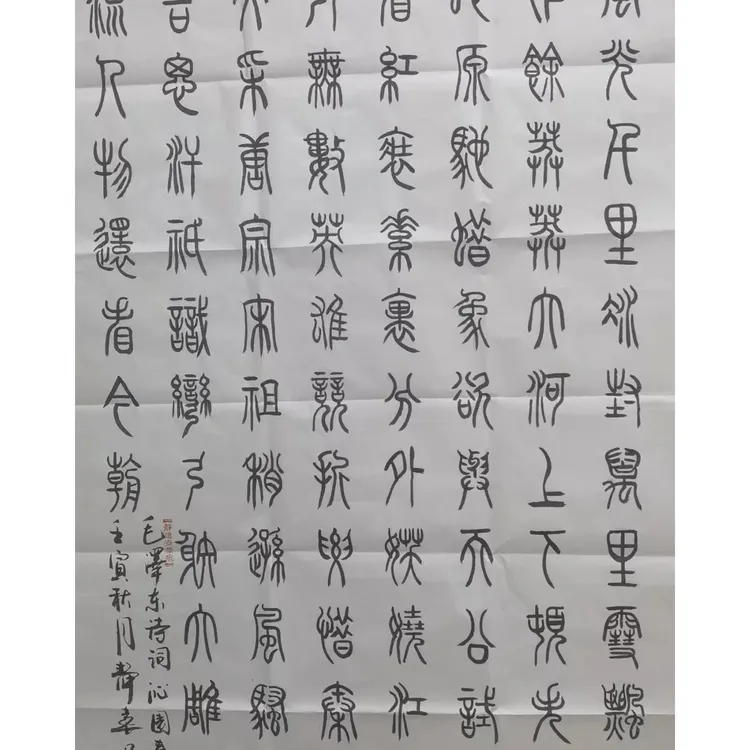 風光千里冰封萬里雪飄
餘莽莽大河上下頓失
原馳蠟象欲與天公試
看紅裝素裹分外妖嬈江
引無數英雄競折腰惜秦
文采唐宗宋祖稍遜風騷
吉思汗祗識彎弓射大雕
流人物還看今朝
毛澤东诗詞沁園春
壬寅秋月靜